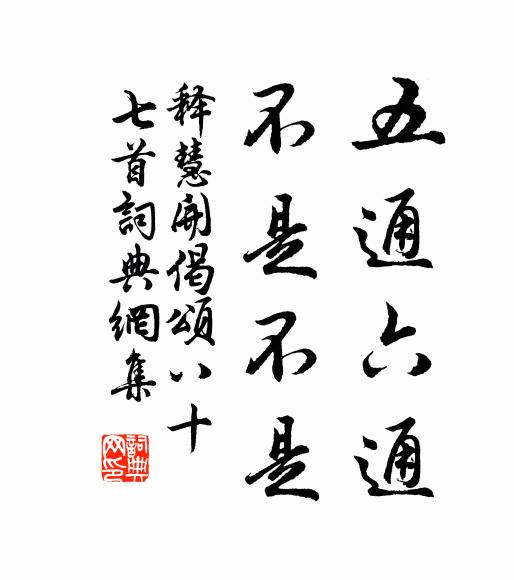 五通六通
不是不是
释慧開偈頌八十
七首詞典網集
詞典网印